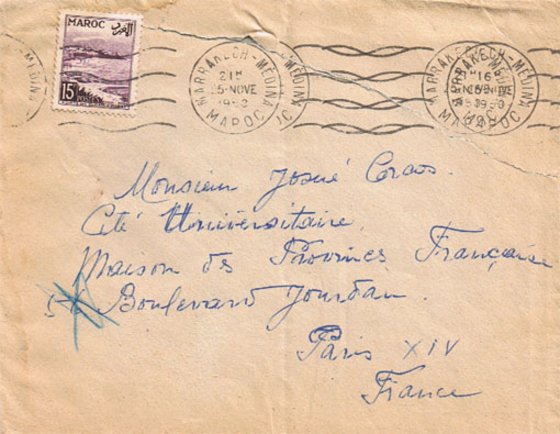 MAROC
المغرب
15F POSTES
MARRAKECH-MEDINA
21H
25-NOVE
MAROC
MARRAKECH-MEDINA
16
NOVE
MAROC
Monsieur Josué Corcos.
Cité Universitaire
Maison des Provinces Française
Boulevard Jourdan.
Paris XIV
France